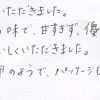 いただきました。
の味で、甘すぎず、優
いしくいただきました。
のようで、パッケージも